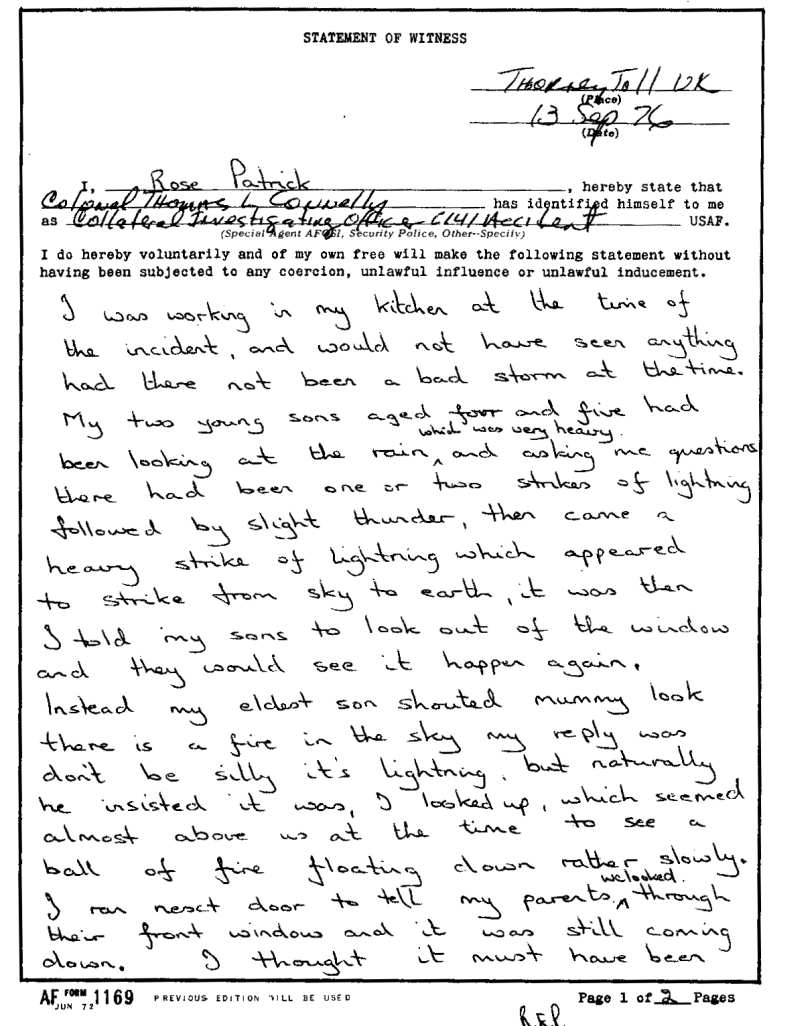 STATEMENT OF WITNESS
Thorney Toll UK
(Place)
13 Sep 76
(Date)
I, Rose Patrick, hereby state that
Colonel Thomas L Connelly has identified himself to me
as Collateral Investigating Officer C141 Accident USAF.
(Special Agent AFOSI, Security Police, Other--Specify)
I do hereby voluntarily and of my own free will make the following statement without
having been subjected to any coercion, unlawful influence or unlawful inducement.
I was working in my kitchen at the time of
the incident, and would not have seen anything
had there not been a bad storm at the time.
My two young sons aged four and five had
which was very heavy.
been looking at the rain, and asking me questions
there had been one or two strikes of lightning
followed by slight thunder, then came a
heavy strike of lightning which appeared
to strike from sky to earth, it was then
I told my sons to look out of the window
and they would see it happen again.
Instead my eldest son shouted mummy look
there is a fire in the sky my reply was
don't be silly it's lightning, but naturally
he insisted it was, I looked up, which seemed
almost above us at the time to see a
ball of fire floating down rather slowly.
we looked.
I ran next door to tell my parents, through
their front window and it was still coming
down. I thought it must have been
AF FORM 1169 PREVIOUS EDITION WILL BE USED Page 1 of 2 Pages
JUN 72
R.E.P.